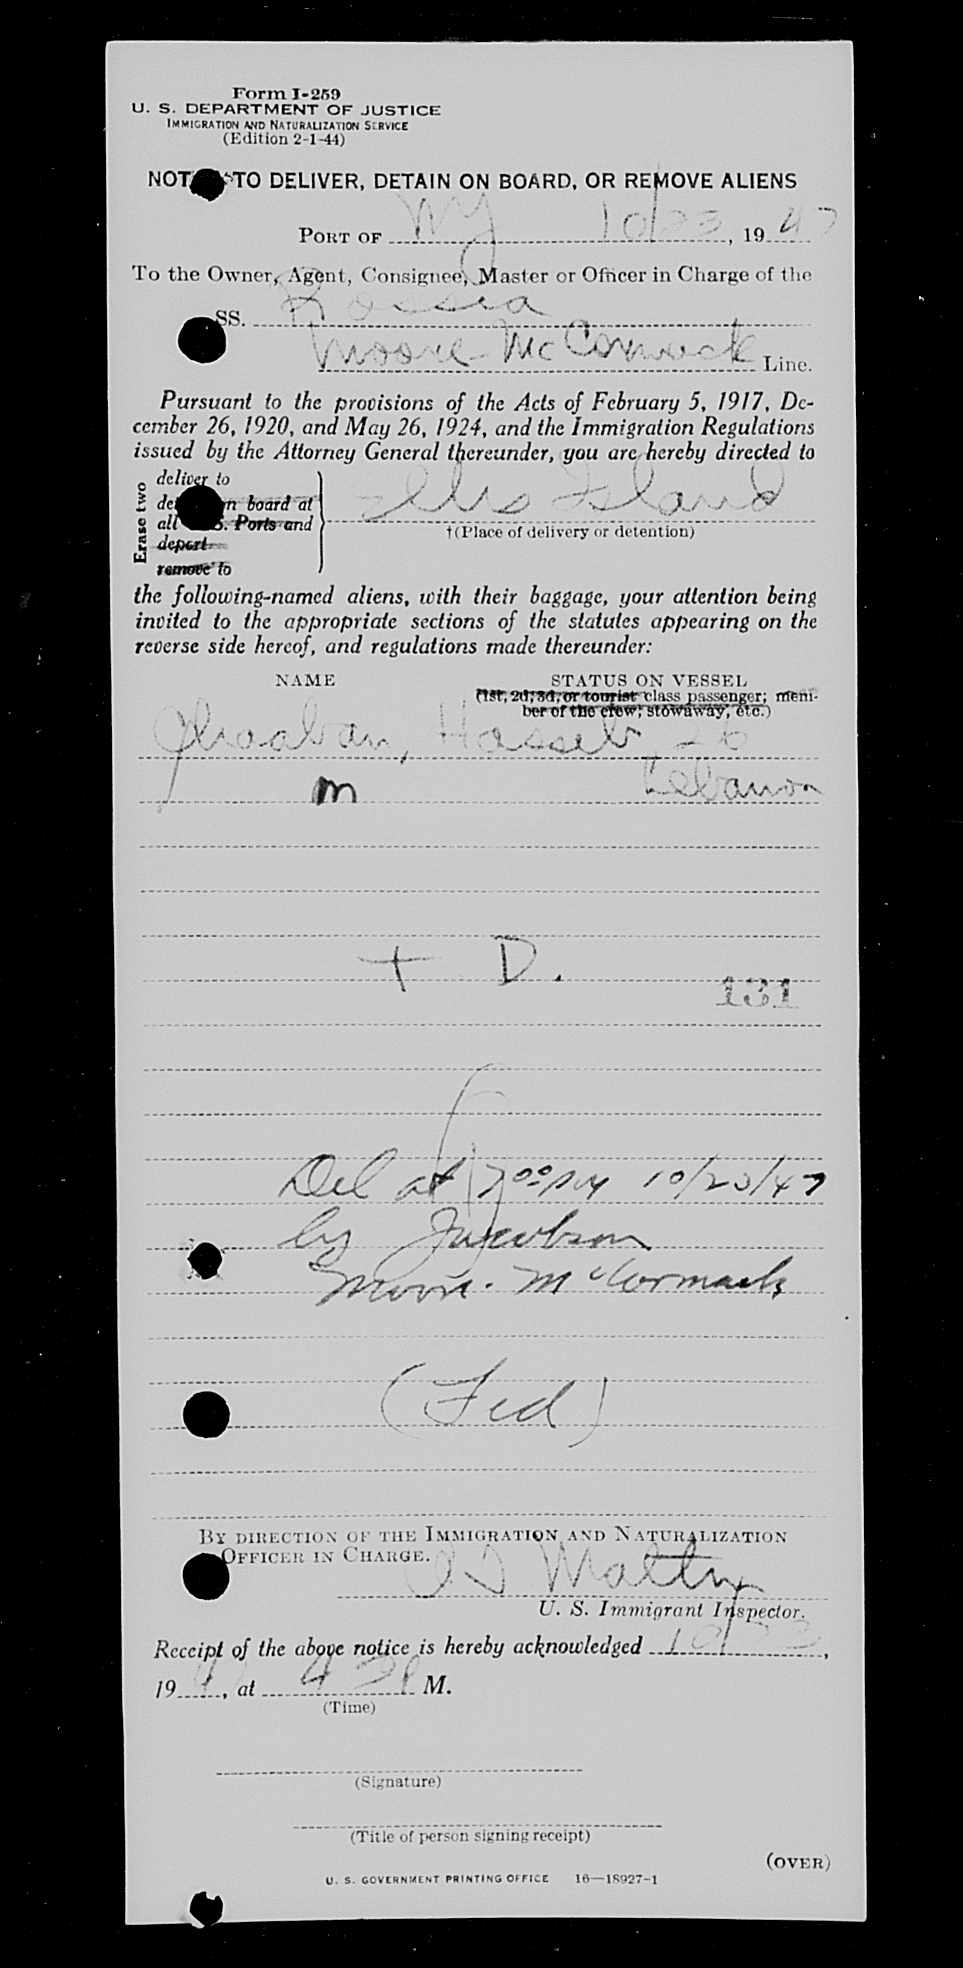 Form I-259
U. S. DEPARTMENT OF JUSTICE
IMMIGRATION AND NATURALIZATION SERVICE
(Edition 2-1-44)
TO DELIVER, DETAIN ON BOARD, OR REMOVE ALIENS
PORT OF NY 10/23, 1947
To the Owner, Agent, Consignee, Master or Officer in Charge of the
SS. Rossia
Moore-McCormack Line.
Pursuant to the provisions of the Acts of February 5, 1917, De-
cember 26, 1920, and May 26, 1924, and the Immigration Regulations
issued by the Attorney General thereunder, you are hereby directed to
Erase two
deliver to
board at
all Ports and
deport
remove to
Ellis Island
†(Place of delivery or detention)
the following-named aliens, with their baggage, your attention being
invited to the appropriate sections of the statutes appearing on the
reverse side hereof, and regulations made thereunder:
NAME STATUS ON VESSEL
(1st, 2d, 3d, or tourist class passenger; mem-
ber of the crew; stowaway, etc.)
Hasseb
m Lebanon
+ D.
131
Del at 7 00 PM 10/23/47
by Jacobson
Moore-McCormack
(Fed)
BY DIRECTION OF THE IMMIGRATION AND NATURALIZATION
OFFICER IN CHARGE.
U. S. Immigrant Inspector.
Receipt of the above notice is hereby acknowledged 10/23,
19 4, at 4 M.
(Time)
(Signature)
(Title of person signing receipt)
(OVER)
U. S. GOVERNMENT PRINTING OFFICE 16—18927-1